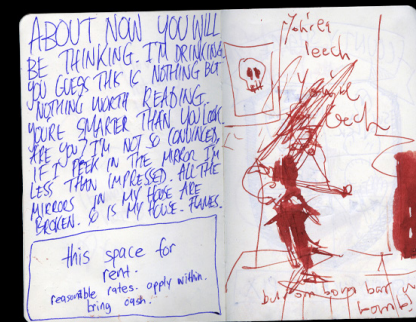 ABOUT NOW YOU WILL
BE THINKING. I'M DRINKING.
YOU GUESS THIS IS NOTHING BUT
NOTHING WORTH READING.
YOURE SMARTER THAN YOU LOOK
ARE YOU? I'M NOT SO CONVINCED.
IF I PEEK IN THE MIRROR I'M
LESS THAN IMPRESSED. ALL THE
MIRRORS IN MY HOUSE ARE
BROKEN. SO IS MY HOUSE. FLAMES.
this space for
rent.
reasonable rates. apply within.
bring cash.
You're a
leech
You're
leech